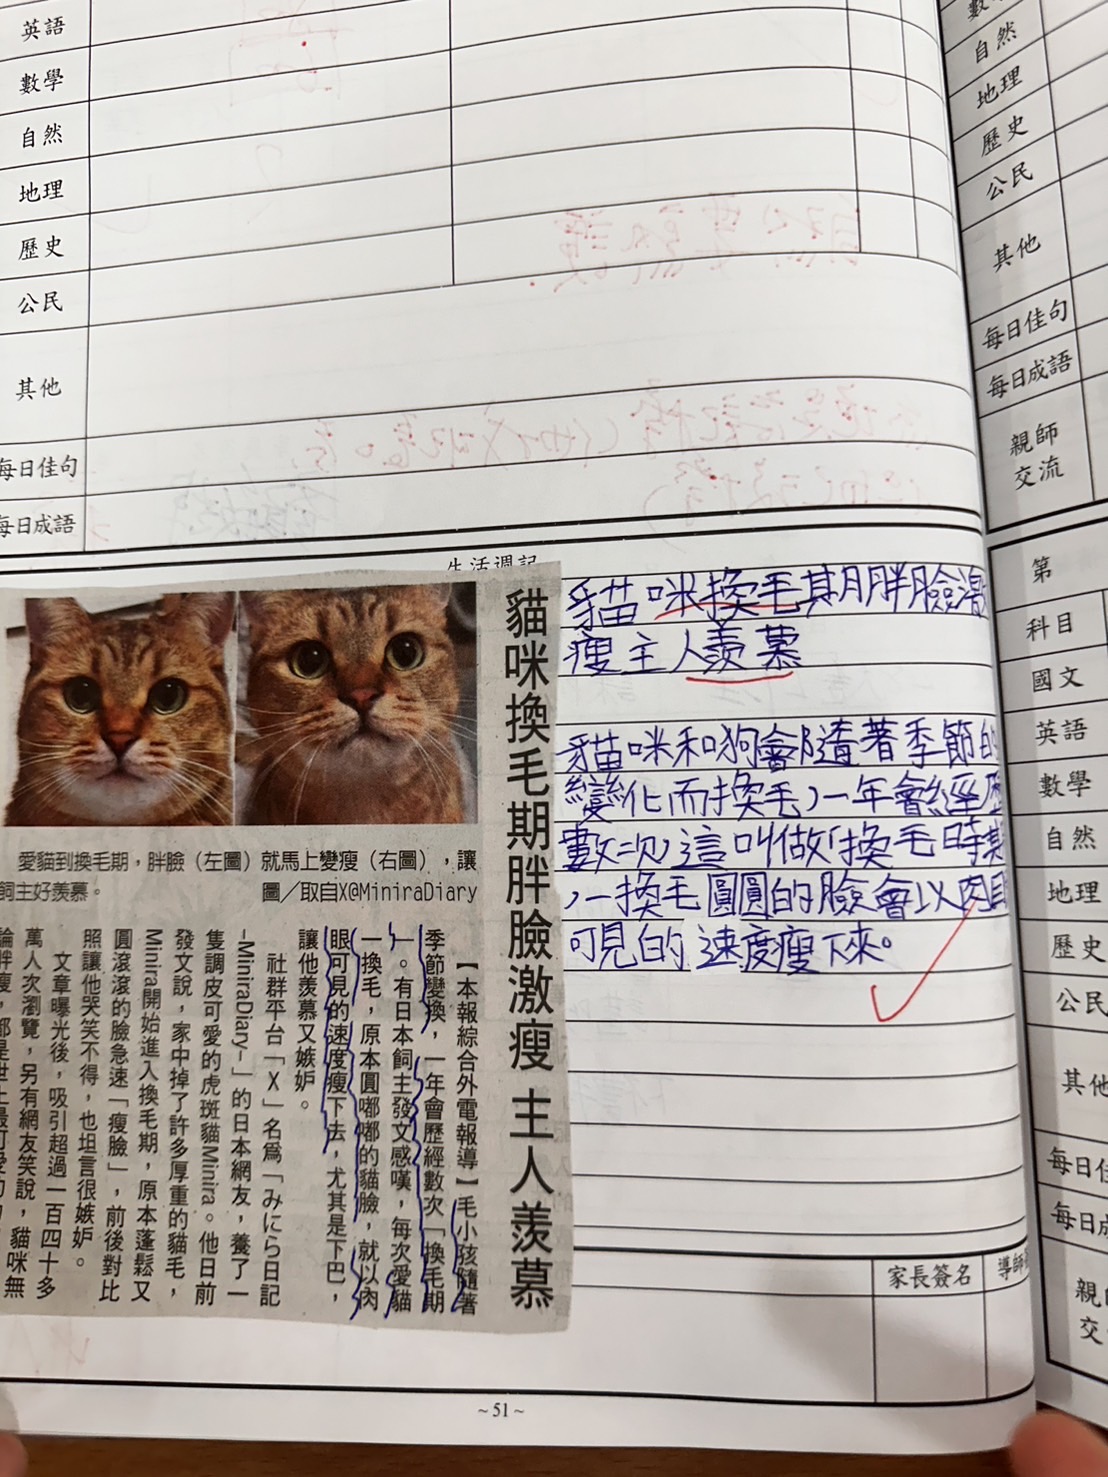 英語
數學
自然
地理
歷史
公民
其他
每日佳句
每日成語
生活週記
貓咪換毛期胖臉激瘦 主人羨慕
愛貓到換毛期，胖臉（左圖）就馬上變瘦（右圖），讓
飼主好羨慕。
圖／取自X@MiniraDiary
【本報綜合外電報導】毛小孩隨著
季節變換，一年會歷經數次「換毛期
」。有日本飼主發文感嘆，每次愛貓
一換毛，原本圓嘟嘟的貓臉，就以肉
眼可見的速度瘦下去，尤其是下巴，
讓他羨慕又嫉妒。
社群平台「X」名為「みにら日記
-MiniraDiary-」的日本網友，養了一
隻調皮可愛的虎斑貓Minira。他日前
發文說，家中掉了許多厚重的貓毛，
Minira開始進入換毛期，原本蓬鬆又
圓滾滾的臉急速「瘦臉」，前後對比
照讓他哭笑不得，也坦言很嫉妒。
文章曝光後，吸引超過一百四十多
萬人次瀏覽，另有網友笑說，貓咪無
貓咪換毛期胖臉激
瘦主人羨慕
貓咪和狗會隨著季節的
變化而換毛，一年會經歷
數次，這叫做「換毛時期
，一換毛圓圓的臉會以肉目
可見的速度瘦下來。
家長簽名
導師
~51~
自然
地理
歷史
公民
其他
每日佳句
每日成語
親師
交流
第
科目
國文
英語
數學
自然
地理
歷史
公民
其他
每日佳
每日成
親
交